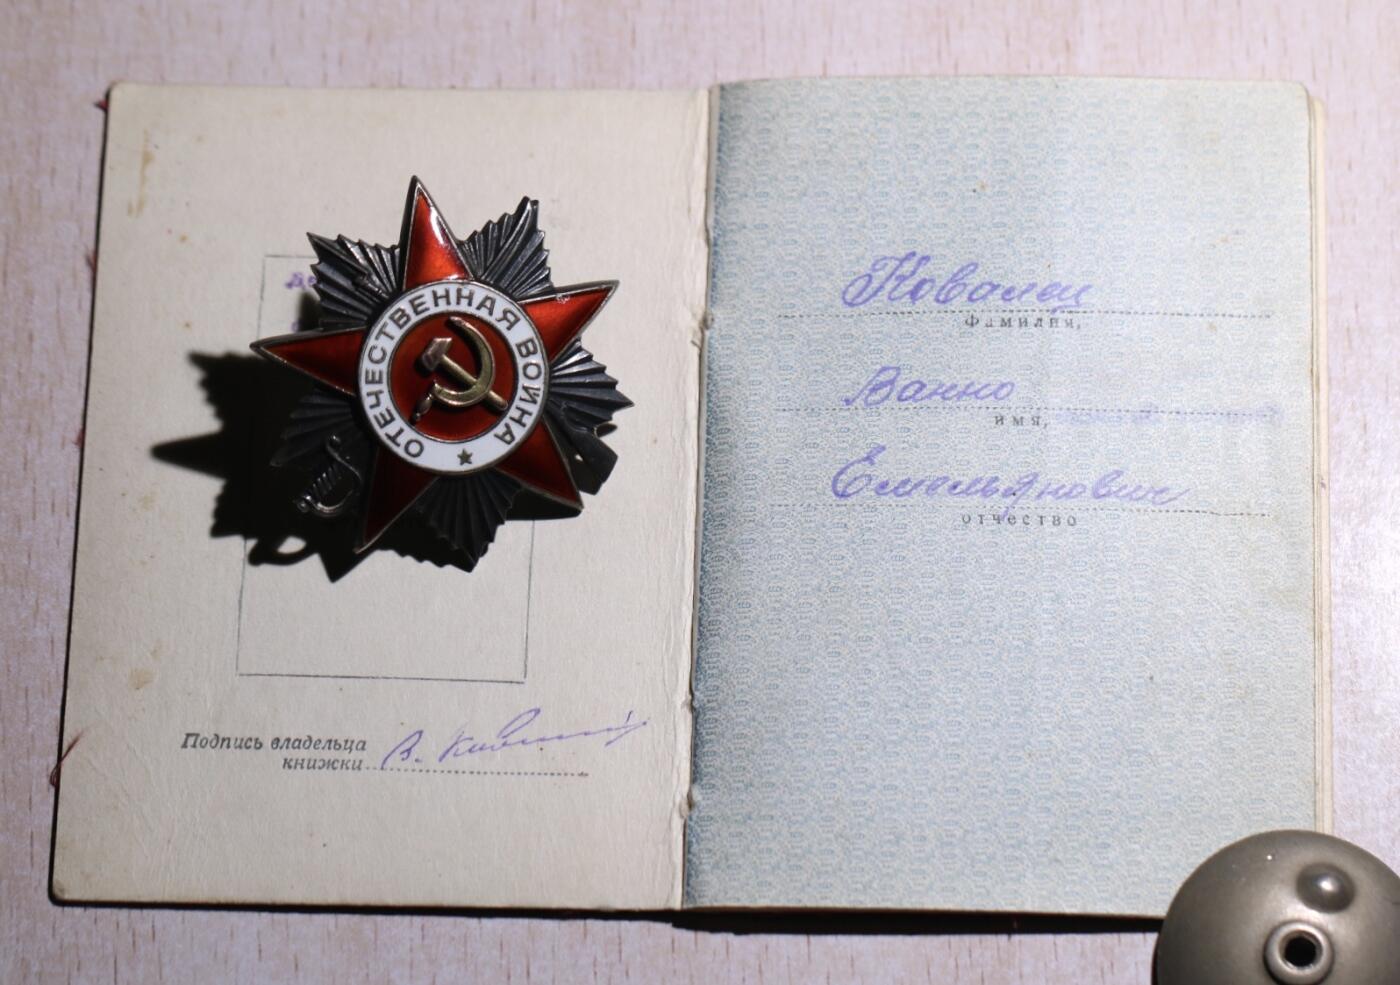 ОТЕЧЕСТВЕННАЯ ВОЙНА
Подпись владельца
книжки
В.
Ковалец
фамилия,
Ванно
имя,
Емельянович
отчество